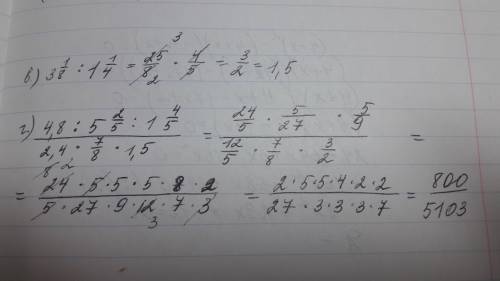 в) 3 1/8 : 1 1/4 = 25/8 · 4/5 = 3/2 = 1,5
3
2
г) (4,8 : 5 2/5 : 1 4/5)/(2,4 · 7/8 · 1,5) = (24/5 · 5/27 · 5/9)/(12/5 · 7/8 · 3/2) =
8 2
= (24 · 5 · 5 · 5 · 8 · 2)/(5 · 27 · 9 · 12 · 7 · 3) = (2 · 5 · 5 · 4 · 2 · 2)/(27 · 3 · 3 · 3 · 7) = 800/5103
3